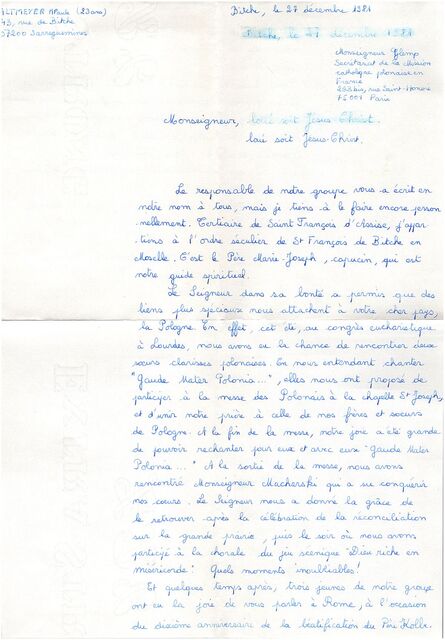 ALTMEYER Paule (23 ans)
43, rue de Bitche
57200 Sarreguemines
Bitche, le 27 décembre 1981
Bitche, le 27 décembre 1981
Monseigneur Glemp
Secrétariat de la Mission
catholique polonaise en
France
263 bis, rue Saint-Honoré
75001 Paris
Monseigneur, loué soit Jésus-Christ.
loué soit Jésus-Christ.
Le responsable de notre groupe vous a écrit en
notre nom à tous, mais je tiens à le faire encore person-
nellement. Tertiaire de Saint François d'Assise, j'appar-
tiens à l'ordre séculier de St François de Bitche en
Moselle. C'est le Père Marie-Joseph, capucin, qui est
notre guide spirituel.
Le Seigneur dans sa bonté a permis que des
liens plus spéciaux nous attachent à votre cher pays,
la Pologne. En effet, cet été, au congrès eucharistique
à Lourdes, nous avons eu la chance de rencontrer deux
sœurs clarisses polonaises. En nous entendant chanter
"Gaude Mater Polonia...", elles nous ont proposé de
participer à la messe des Polonais à la chapelle St Joseph,
et d'unir notre prière à celle de nos frères et sœurs
de Pologne. A la fin de la messe, notre joie a été grande
de pouvoir rechanter pour eux et avec eux "Gaude Mater
Polonia...." A la sortie de la messe, nous avons
rencontré Monseigneur Macherski qui a su conquérir
nos cœurs. Le Seigneur nous a donné la grâce de
le retrouver après la célébration de la réconciliation
sur la grande prairie, puis le soir où nous avons
participé à la chorale du jeu scénique "Dieu riche en
miséricorde". Quels moments inoubliables!
Et quelques temps après, trois jeunes de notre groupe
ont eu la joie de vous parler à Rome, à l'occasion
du dixième anniversaire de la béatification du Père Kolbe.